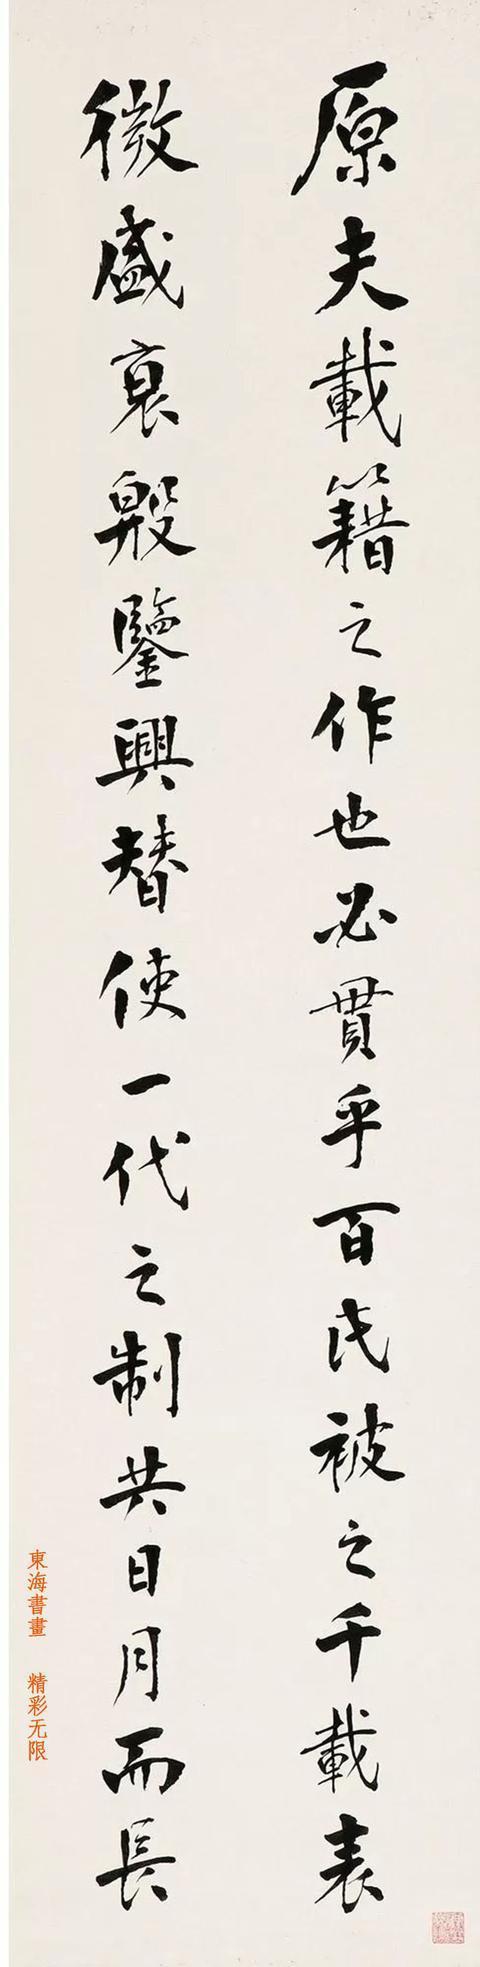 原夫載籍之作也必貫乎百氏被之千載表
徵盛衰殷鑒興替使一代之制共日月而長
東海書畫 精彩无限